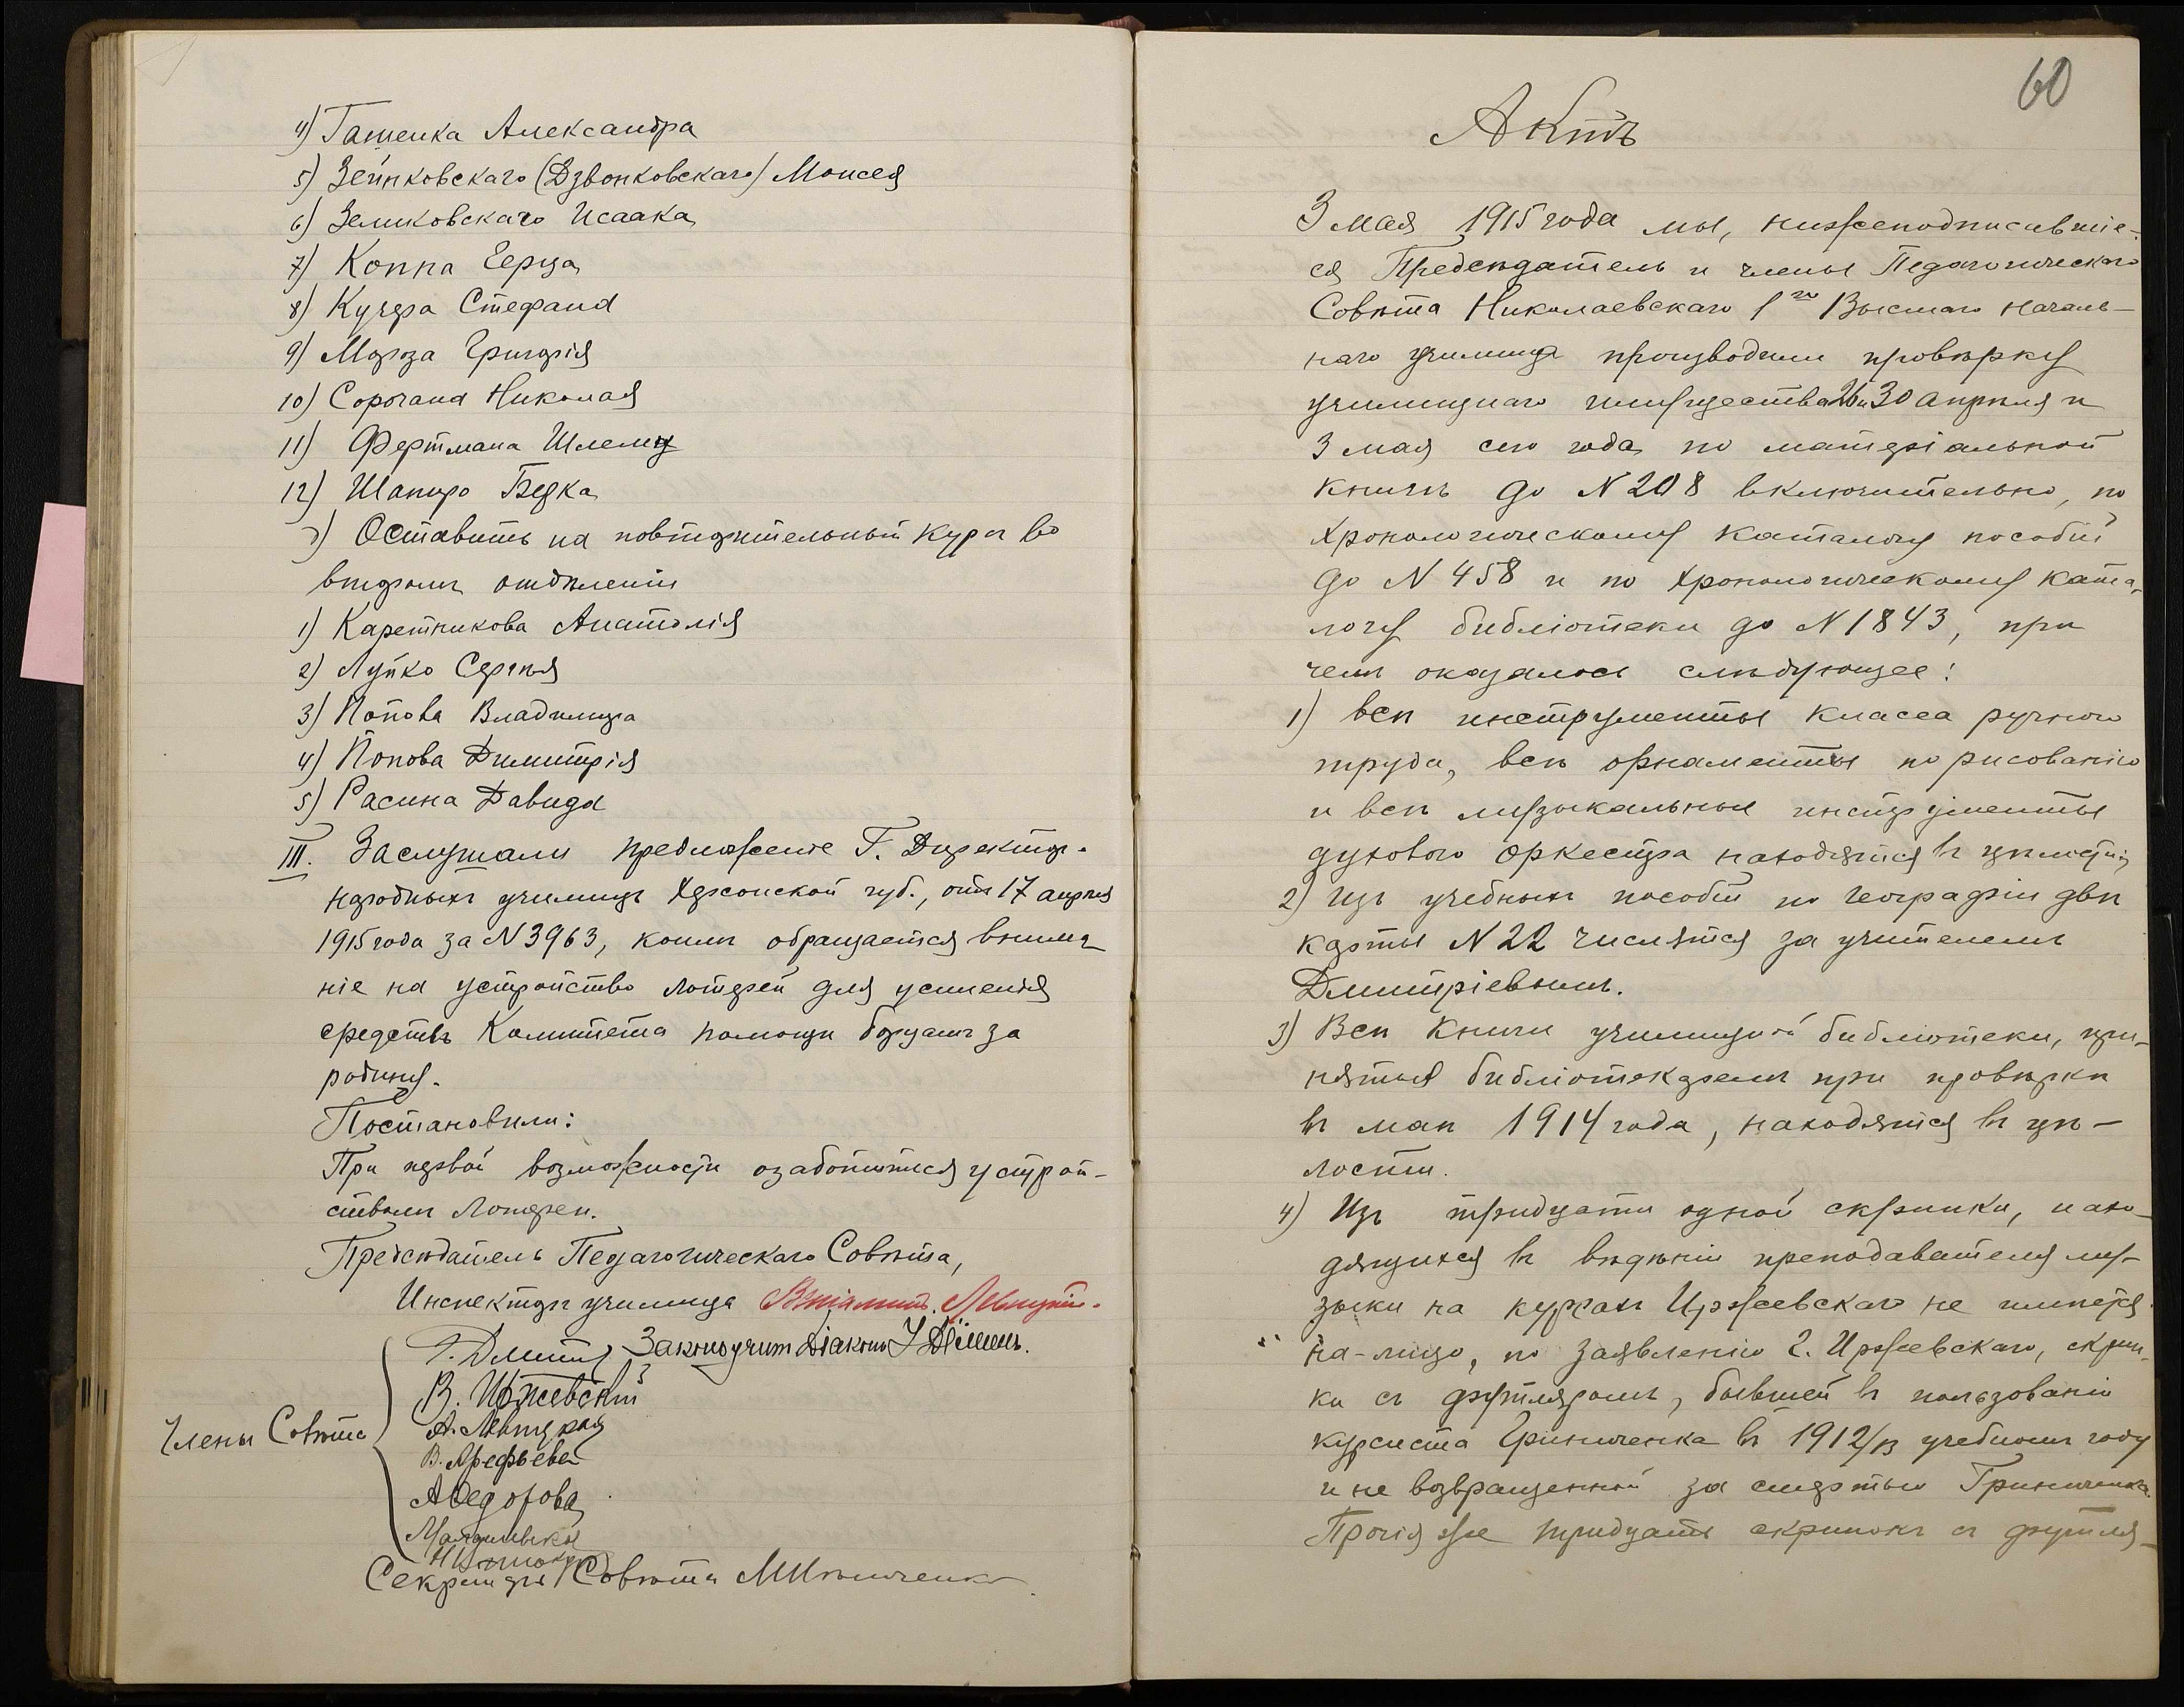 4) Гашенка Александра
5) Зейнковскаго (Дзвонковскаго) Моисея
6) Зеликовскаго Исаака
7) Коппа Герца
8) Кучера Стефана
9) Мороза Григорія
10) Сорочана Николая
11) Фертмана Шлему
12) Шапиро Берка
д) Оставить на повторительный курсъ во
второмъ отдѣленіи
1) Каретникова Анатолія
2) Лупко Сергѣя
3) Попова Владимира
4) Попова Димитрія
5) Расина Давида
III. Заслушали предложеніе Г. Директора
народныхъ училищъ Херсонской губ., отъ 17 апрѣля
1915 года за N 3963, коимъ обращается внима
ніе на устройство лотерей для усиленія
средствъ Комитета помощи борцамъ за
родину.
Постановили:
При первой возможности озаботиться устрой-
ствомъ лотереи.
Предсѣдатель Педагогическаго Совѣта,
Инспекторъ училища Левицкій.
Законоучит. Діаконъ
В. Иржевскій
Члены Совѣта А. Левицкая
В. Арефьева
А Ѳедорова
Секретарь Совѣта
60
Актъ
3 мая 1915 года мы, нижеподписавшіе-
ся Предсѣдатель и члены Педагогическаго
Совѣта Николаевскаго 1го Высшаго началь-
наго училища производили провѣрку
училищнаго имущества 26 и 30 апрѣля и
3 мая сего года по матеріальной
книгѣ до N 208 включительно, по
хронологическому каталогу пособій
до N 458 и по хронологическому ката-
логу библіотеки до N 1843, при
чемъ оказалось слѣдующее:
1) всѣ инструменты класса ручного
труда, всѣ орнаменты по рисованію
и всѣ музыкальные инструменты
духового оркестра находятся въ цѣлости;
2) изъ учебныхъ пособій по географіи двѣ
карты N 22 числятся за учителемъ
Дмитріевымъ.
3) Всѣ книги училищной библіотеки, при-
нятыя библіотекаремъ при провѣркѣ
въ маѣ 1914 года, находятся въ цѣ-
лости.
4) Изъ тридцати одной скрипки, нахо-
дящихся въ вѣдѣніи преподавателя му-
зыки на курсахъ Иржевскаго не имѣется
на-лицо, по заявленію г. Иржевскаго, скрип-
ки съ футляромъ, бывшей въ пользованіи
курсиста Гриниченка въ 1912/13 учебномъ году
и не возвращенной за смертью Гриниченка.
Прочія же тридцать скрипокъ съ футля-